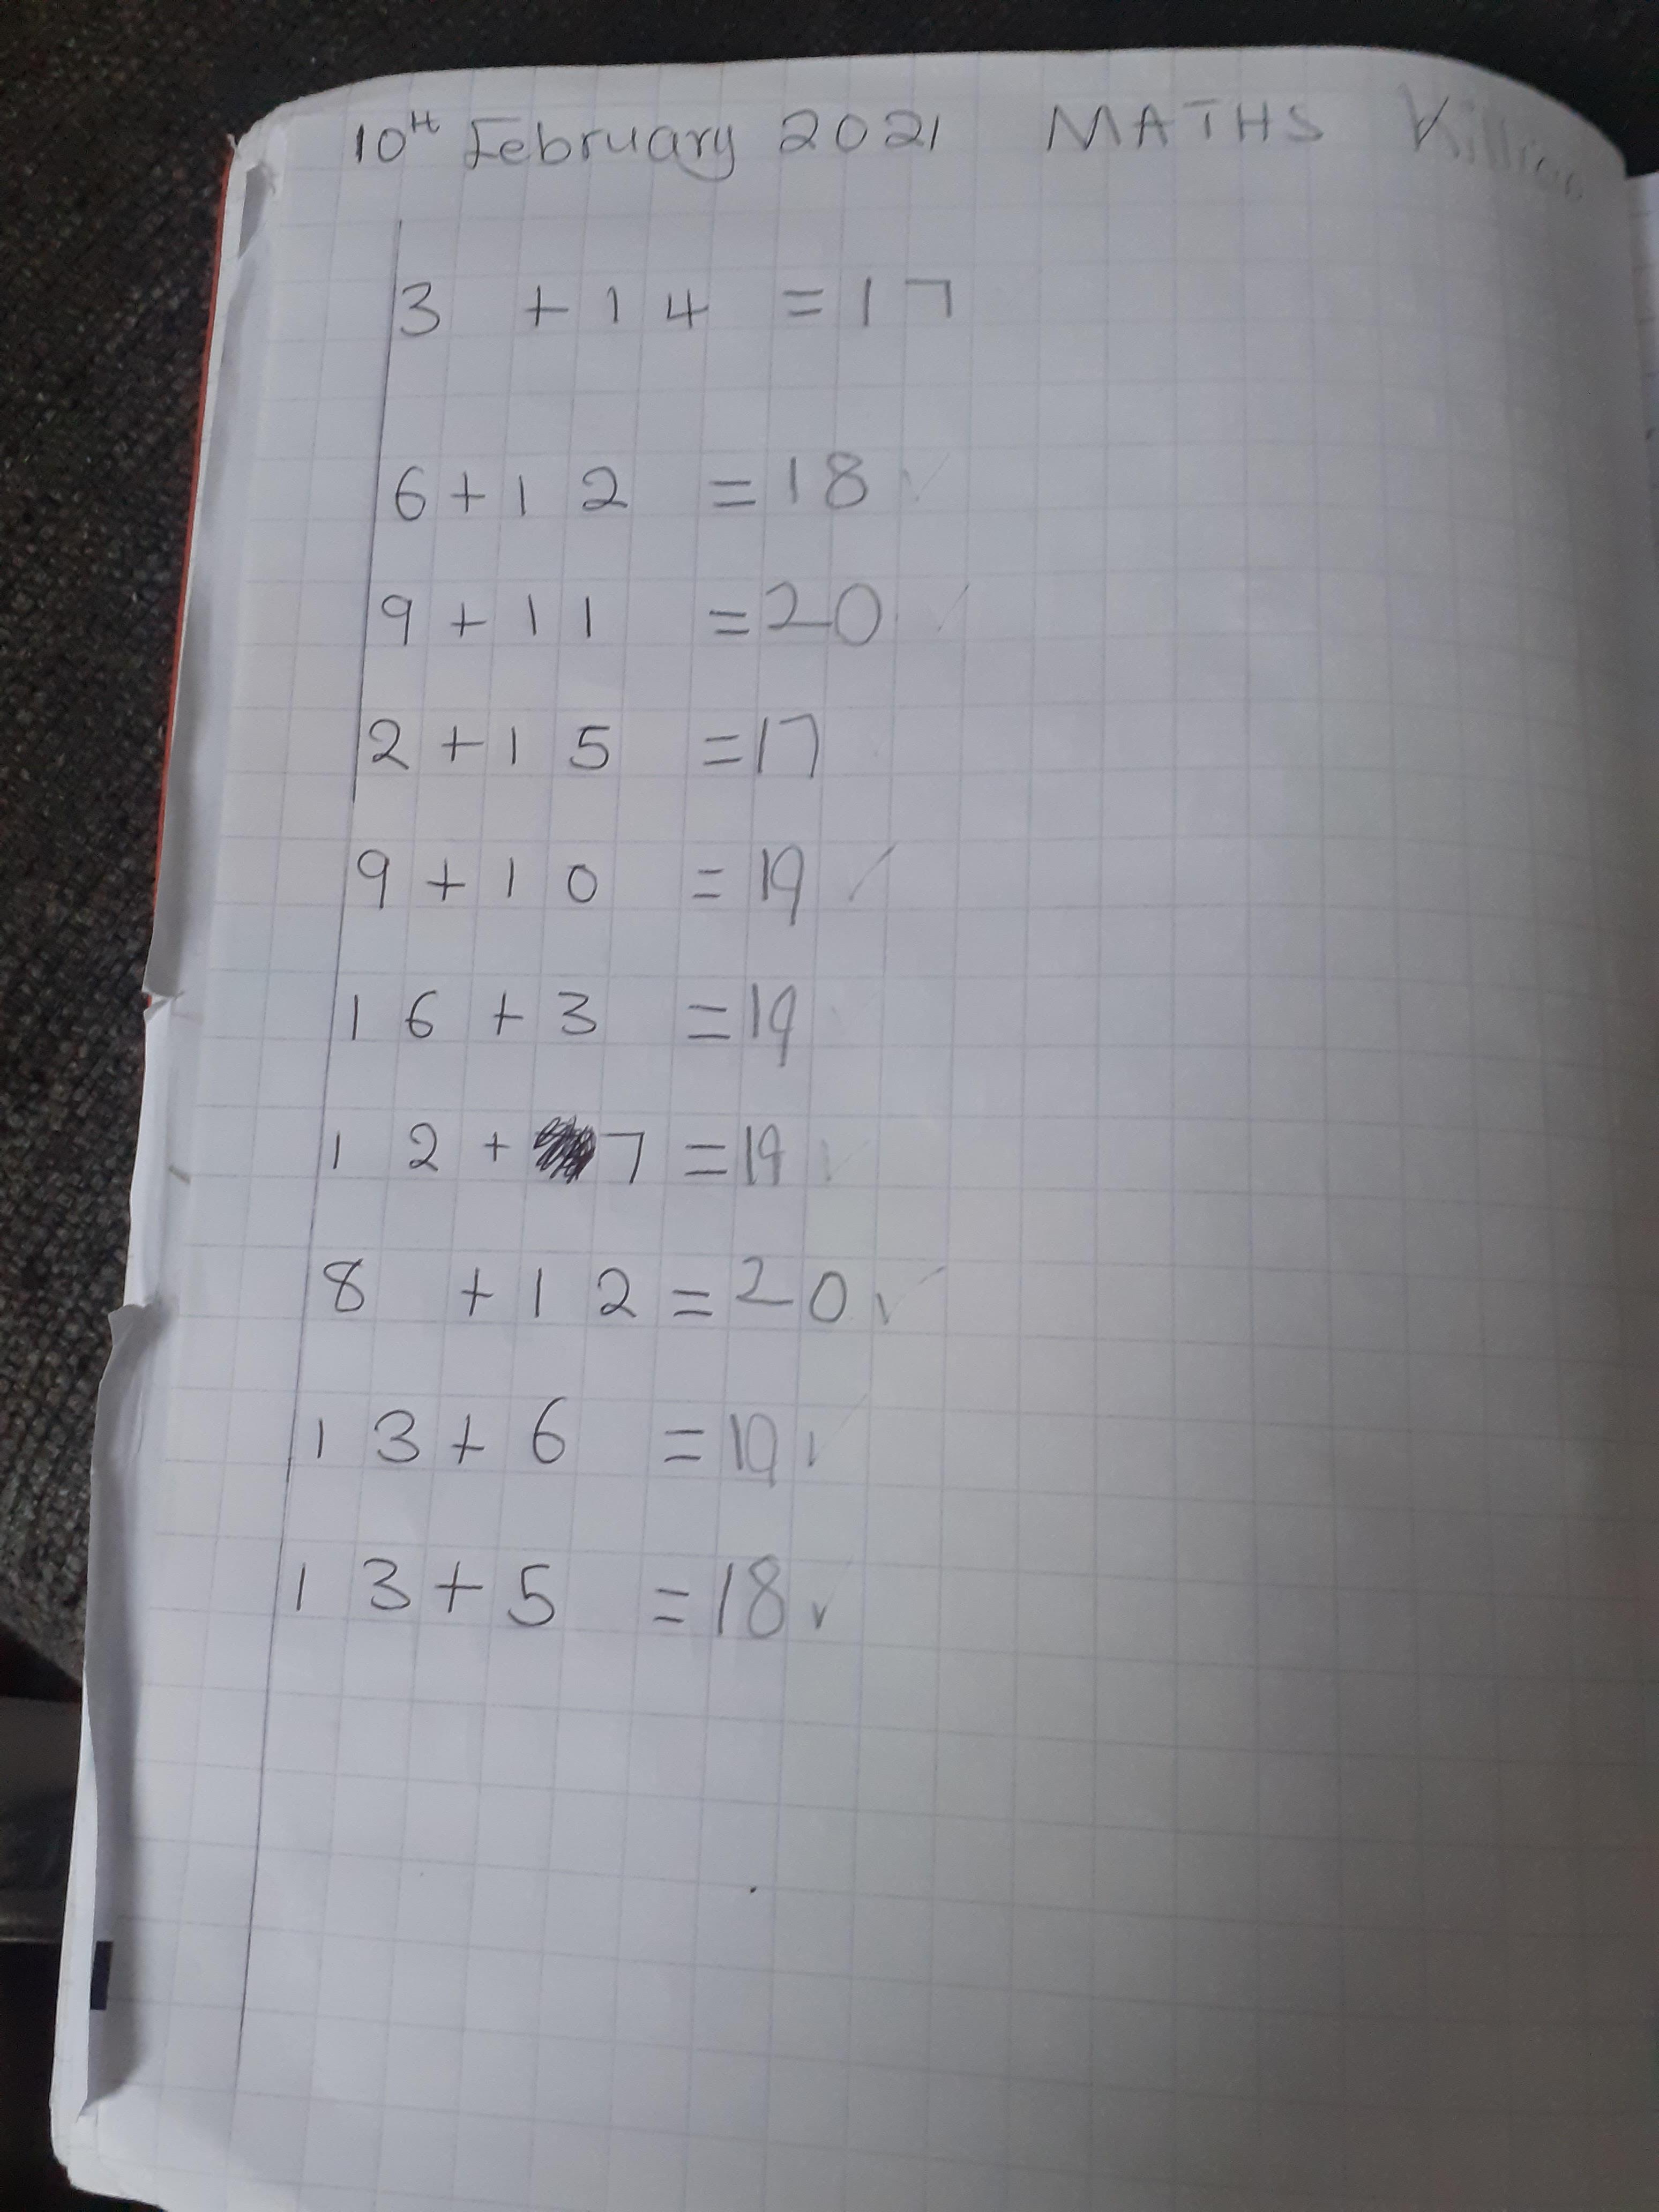 10TH February 2021 MATHS
3 + 14 = 17
6 + 12 = 18 ✓
9 + 11 = 20 ✓
2 + 15 = 17
9 + 10 = 19 ✓
16 + 3 = 19
12 + 7 = 19 ✓
8 + 12 = 20 ✓
13 + 6 = 19 ✓
13 + 5 = 18 ✓